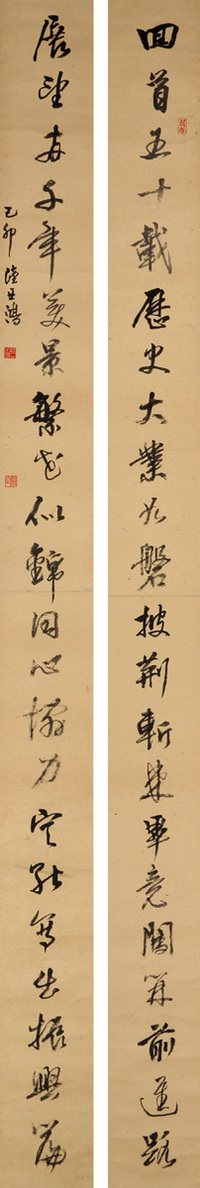 回首五十載歷史大業如磐披荆斬棘畢竟闢開前進路
展望廿千年美景繁花似錦同心協力定能寫出振興篇
己卯陸丑鴻